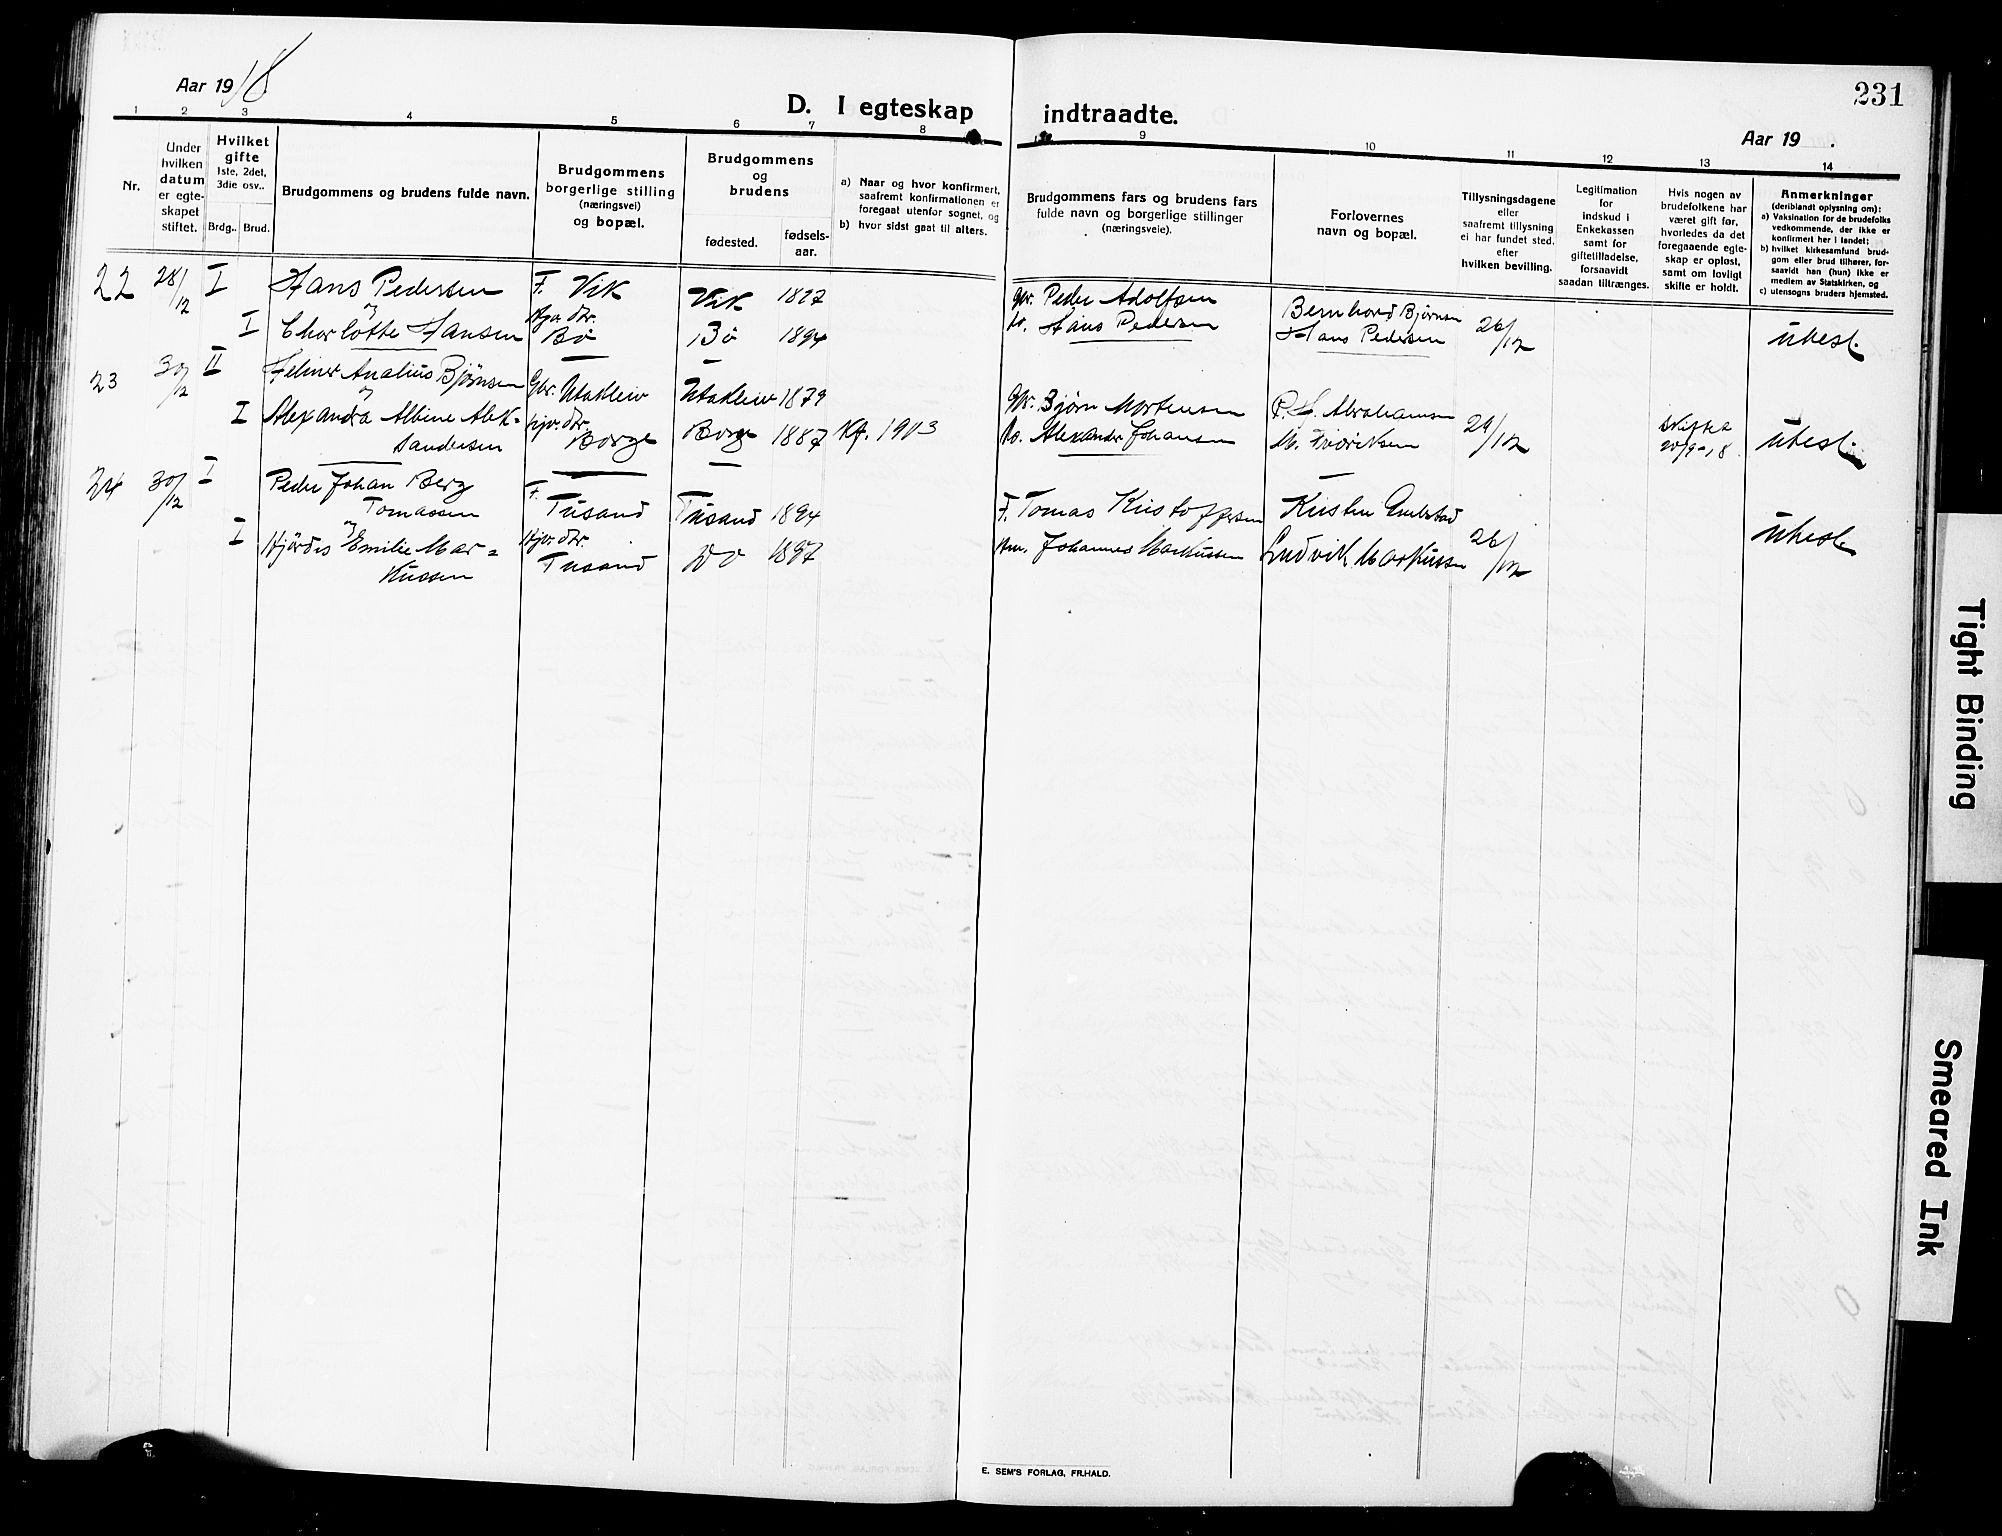 Aar 1918
D. I egteskap indtraadte.
231
Aar 19 .
1 2 3 4 5 6 7 8 9 10 11 12 13 14
Nr.
Under
hvilken
datum
er egte-
skapet
stiftet.
Hvilket
gifte
1ste, 2det,
3die osv..
Brdg.. Brud.
Brudgommens og brudens fulde navn.
Brudgommens
borgerlige stilling
(næringsvei)
og bopæl.
Brudgommens
og
brudens
fødested.
fødsels-
aar.
a) Naar og hvor konfirmert,
saafremt konfirmationen er
foregaat utenfor sognet, og
b) hvor sidst gaat til alters.
Brudgommens fars og brudens fars
fulde navn og borgerlige stillinger
(næringsveie).
Forlovernes
navn og bopæl.
Tillysningsdagene
eller
saafremt tillysning
ei har fundet sted.
efter
hvilken bevilling.
Legitimation
for
indskud i
Enkekassen
samt for
giftetilladelse,
forsaavidt
saadan tiltrænges.
Hvis nogen av
brudefolkene har
været gift før,
hvorledes da det
foregaaende egte-
skap er opløst,
samt om lovligt
skifte er holdt.
Anmerkninger
(deriblandt oplysning om):
a) Vaksination for de brudefolks
vedkommende, der ikke er
konfirmert her i landet;
b) hvilket kirkesamfund brud-
gom eller brud tilhører, for-
saavidt han (hun) ikke er
medlem av Statskirken, og
c) utensogns bruders hjemsted.
22 28/12 I Hans Pedersen F. Vik Vik Gbr. Peder Adolfsen Bernhard Bjørnsen
og
I Charlotte Hansen Hjv. dtr. Bø Bø 1894 Hans Pedersen Hans Pedersen 26/12 ubesl.
23 30/12 II Analius Bjørnsen Gbr. Utakleiv Utakleiv 1879 Gbr. Bjørn Mortensen P. H. Abrahamsen
og
I Alexanda Albine Alek-
sandersen hjv. dtr. Borge Borge 1887 Kf. 1903 Alexander Johansen M. 29/12 skifte 20/9-18 ubesl.
24 30/12 I Peder Johan Berg
Tomassen F. Tusand Tusand 1894 F. Tomas Kristoffersen Kristen
og
I Hjørdis Emilie Mar-
kussen Hjv. dtr. Tusand Do 1897 Johannes Markussen Ludvik Markussen 26/12 ubesl.
E. SEM'S FORLAG, FR.HALD.
Tight Binding
Smeared Ink